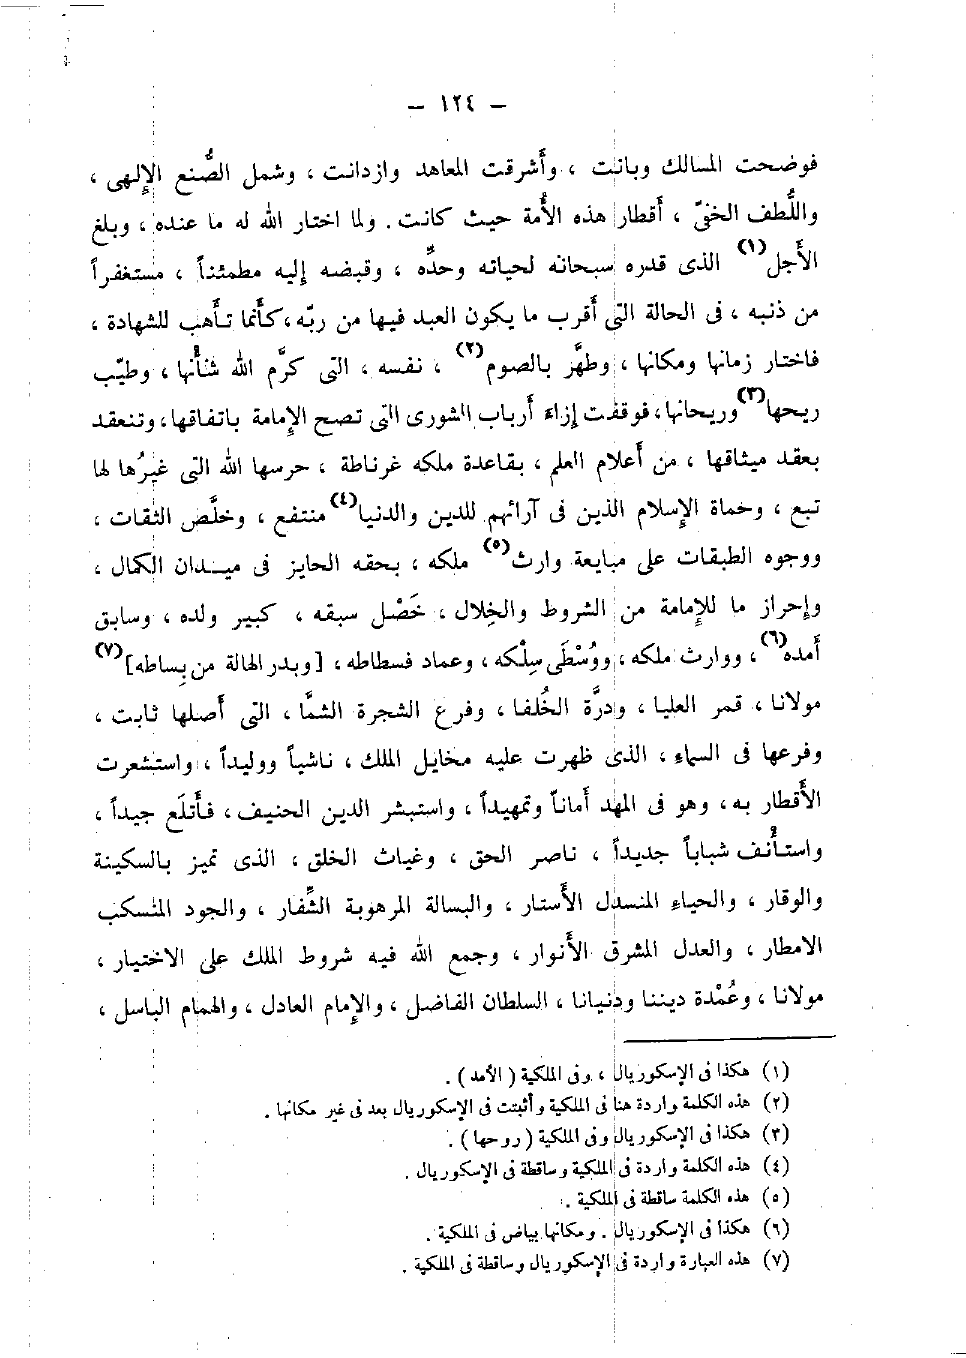 — ١٢٤ —
فوضحت المسالك وبانت ، وأشرقت المعاهد وازدانت ، وشمل الصُّنع الإلهى ،
واللُّطف الخفىّ ، أقطار هذه الأُمة حيث كانت . ولما اختار الله له ما عنده ، وبلغ
الأَجل(١) الذى قدره سبحانه لحياته وحدَّه ، وقبضه إليه مطمئناً ، مستغفراً
من ذنبه ، فى الحالة التى أقرب ما يكون العبد فيها من ربّه ، كأَنما تأَهب للشهادة ،
فاختار زمانها ومكانها ، وطهَّر بالصوم(٢) ، نفسه ، التى كرَّم الله شأْنها ، وطيّب
ريحها(٣) وريحانها ، فوقفت إزاء أرباب الشورى التى تصح الإمامة باتفاقها ، وتنعقد
بعقد ميثاقها ، من أعلام العلم ، بقاعدة ملكه غرناطة ، حرسها الله التى غيرُها لها
تبع ، وحماة الإسلام الذين فى آرائهم للدين والدنيا(٤) منتفع ، وخلَّص الثقات ،
ووجوه الطبقات على مبايعة وارث(٥) ملكه ، بحقه الحايز فى ميدان الكمال ،
وإحراز ما للإمامة من الشروط والخِلال ، خَصْل سبقه ، كبير ولده ، وسابق
أمده(٦) ، ووارث ملكه ، ووُسْطَى سِلْكه ، وعماد فسطاطه ، [وبدر الهالة من بِساطه](٧)
مولانا ، قمر العليا ، ودرَّة الخُلفا ، وفرع الشجرة الشمَّا ، التى أصلها ثابت ،
وفرعها فى السماء ، الذى ظهرت عليه مخايل الملك ، ناشياً ووليداً ، واستشعرت
الأَقطار به ، وهو فى المهد أماناً وتمهيداً ، واستبشر الدين الحنيف ، فأَتلَع جيداً ،
واستأْنف شباباً جديداً ، ناصر الحق ، وغياث الخلق ، الذى تميز بالسكينة
والوقار ، والحياء المنسدل الأَستار ، والبسالة المرهوبة الشِّفار ، والجود المنسكب
الامطار ، والعدل المشرق الأَنوار ، وجمع الله فيه شروط الملك على الاختيار ،
مولانا ، وعُمْدة ديننا ودنيانا ، السلطان الفاضل ، والإمام العادل ، والهمام الباسل ،
(١) هكذا فى الإسكوريال ، وفى الملكية ( الأمد ) .
(٢) هذه الكلمة واردة هنا فى الملكية وأثبتت فى الإسكوريال بعد فى غير مكانها .
(٣) هكذا فى الإسكوريال وفى الملكية ( روحها ) .
(٤) هذه الكلمة واردة فى الملكية وساقطة فى الإسكوريال .
(٥) هذه الكلمة ساقطة فى الملكية .
(٦) هكذا فى الإسكوريال . ومكانها بياض فى الملكية .
(٧) هذه العبارة واردة فى الإسكوريال وساقطة فى الملكية .